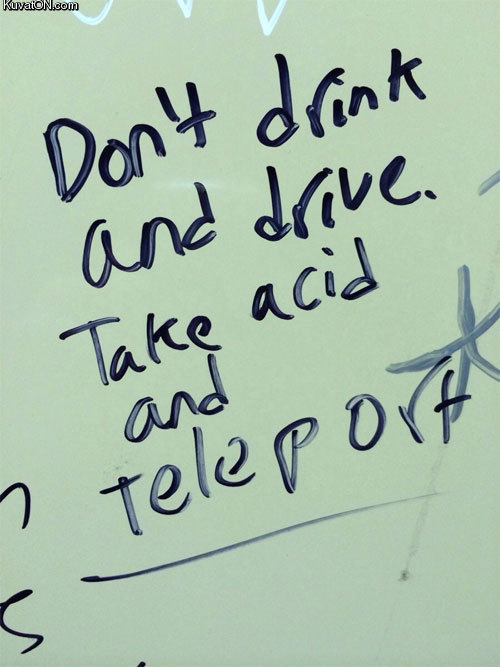 KuvatON.com
Don't drink
and drive.
Take acid
and
teleport